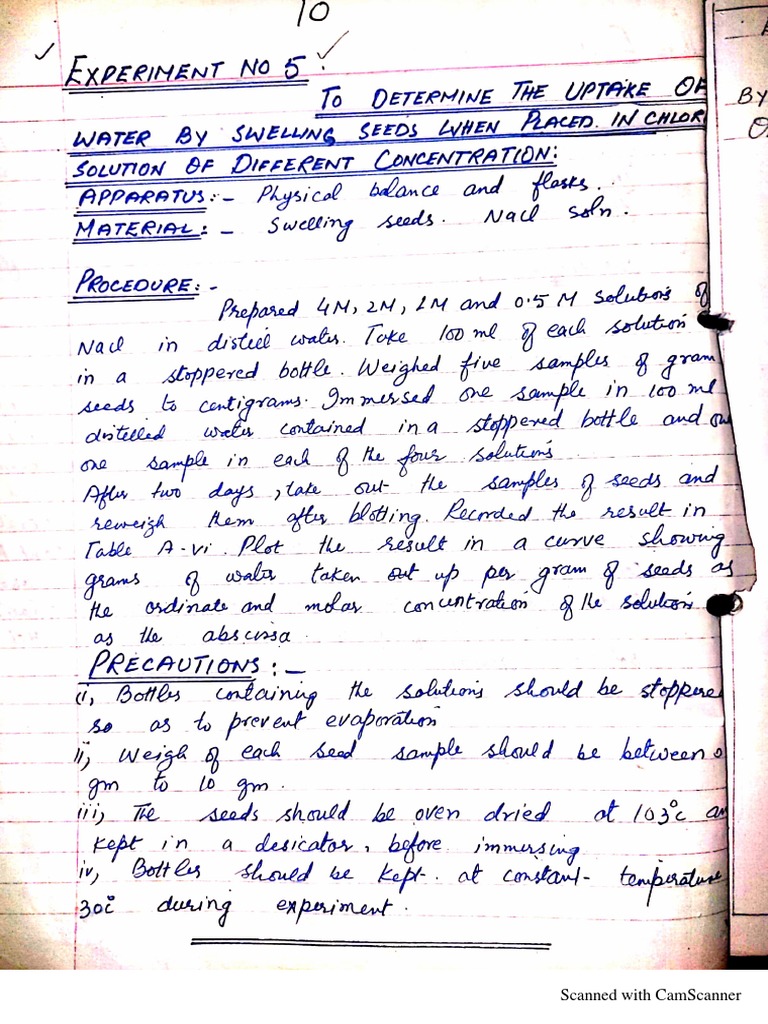 10
EXPERIMENT NO 5:
TO DETERMINE THE UPTAKE OF
WATER BY SWELLING SEEDS WHEN PLACED IN CHLOR
SOLUTION OF DIFFERENT CONCENTRATION:
APPARATUS:- Physical balance and flasks.
MATERIAL:- Swelling seeds. Nacl soln.
PROCEDURE:-
Prepared 4M, 2M, 1M and 0.5 M solutions of
Nacl in distiel water. Take 100 ml of each solution
in a stoppered bottle. Weighed five samples of gram
seeds to centigrams. Immersed one sample in 100 ml
distilled water contained in a stoppered bottle and
one sample in each of the four solutions
After two days, take out the samples of seeds and
reweigh them after blotting. Recorded the result in
Table A-vi. Plot the result in a curve showing
grams of water taken out up per gram of seeds as
the ordinate and molar concentration of the solutions
as the abscissa.
PRECAUTIONS:-
(i, Bottles containing the solutions should be stoppere
so as to prevent evaporation
ii, Weigh of each seed sample should be between
gm to 10 gm.
iii, The seeds should be oven dried at 103°c an
kept in a desicator, before immersing
iv, Bottles should be kept at constant temperature
30°c during experiment.
BY
O
Scanned with CamScanner